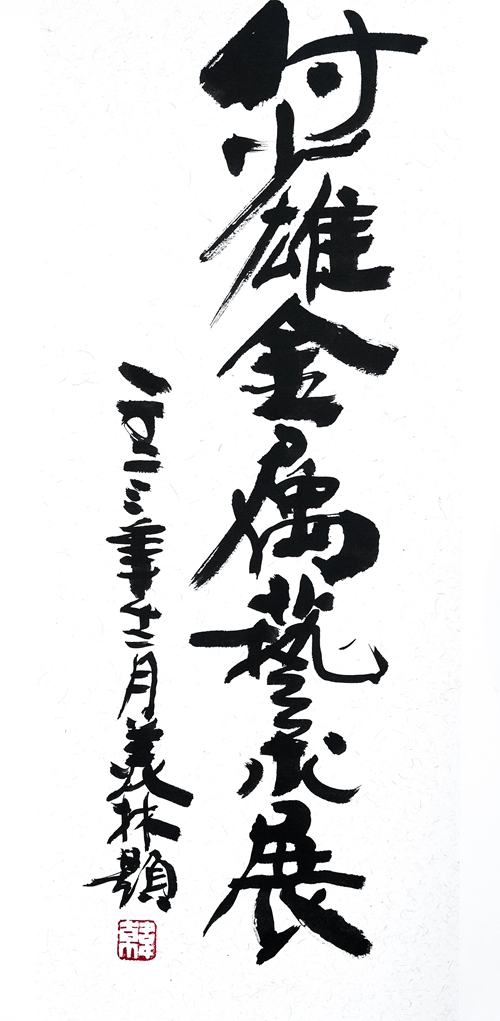 付少雄金属藝术展
二〇一三年十二月美林題
韓